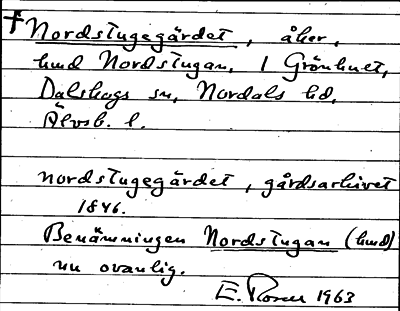 † Nordstugegärdet, åker,
hmd Nordstugan, 1 Grönhult,
Dalskogs sn, Nordals hd,
Älvsb. l.
nordstugegärdet, gårdsarkivet
1846.
Benämningen Nordstugan (hmd)
nu ovanlig.
E. Rosell 1963